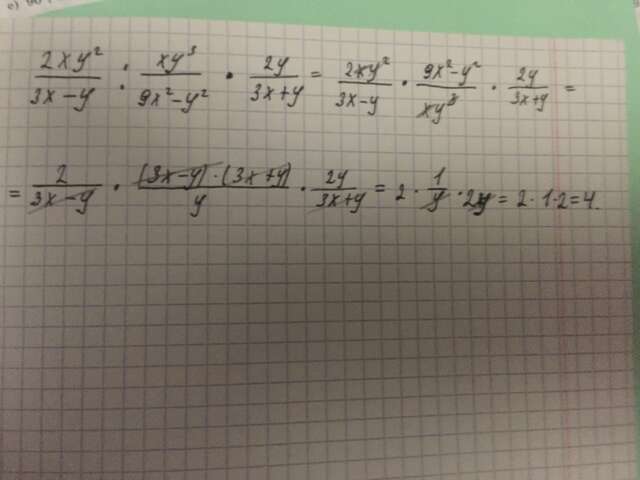 2xy²/3x-y : xy³/9x²-y² · 2y/3x+y = 2xy²/3x-y · 9x²-y²/xy³ · 2y/3x+y =
= 2/3x-y · (3x-y)·(3x+y)/y · 2y/3x+y = 2 · 1/y · 2y = 2·1·2=4.